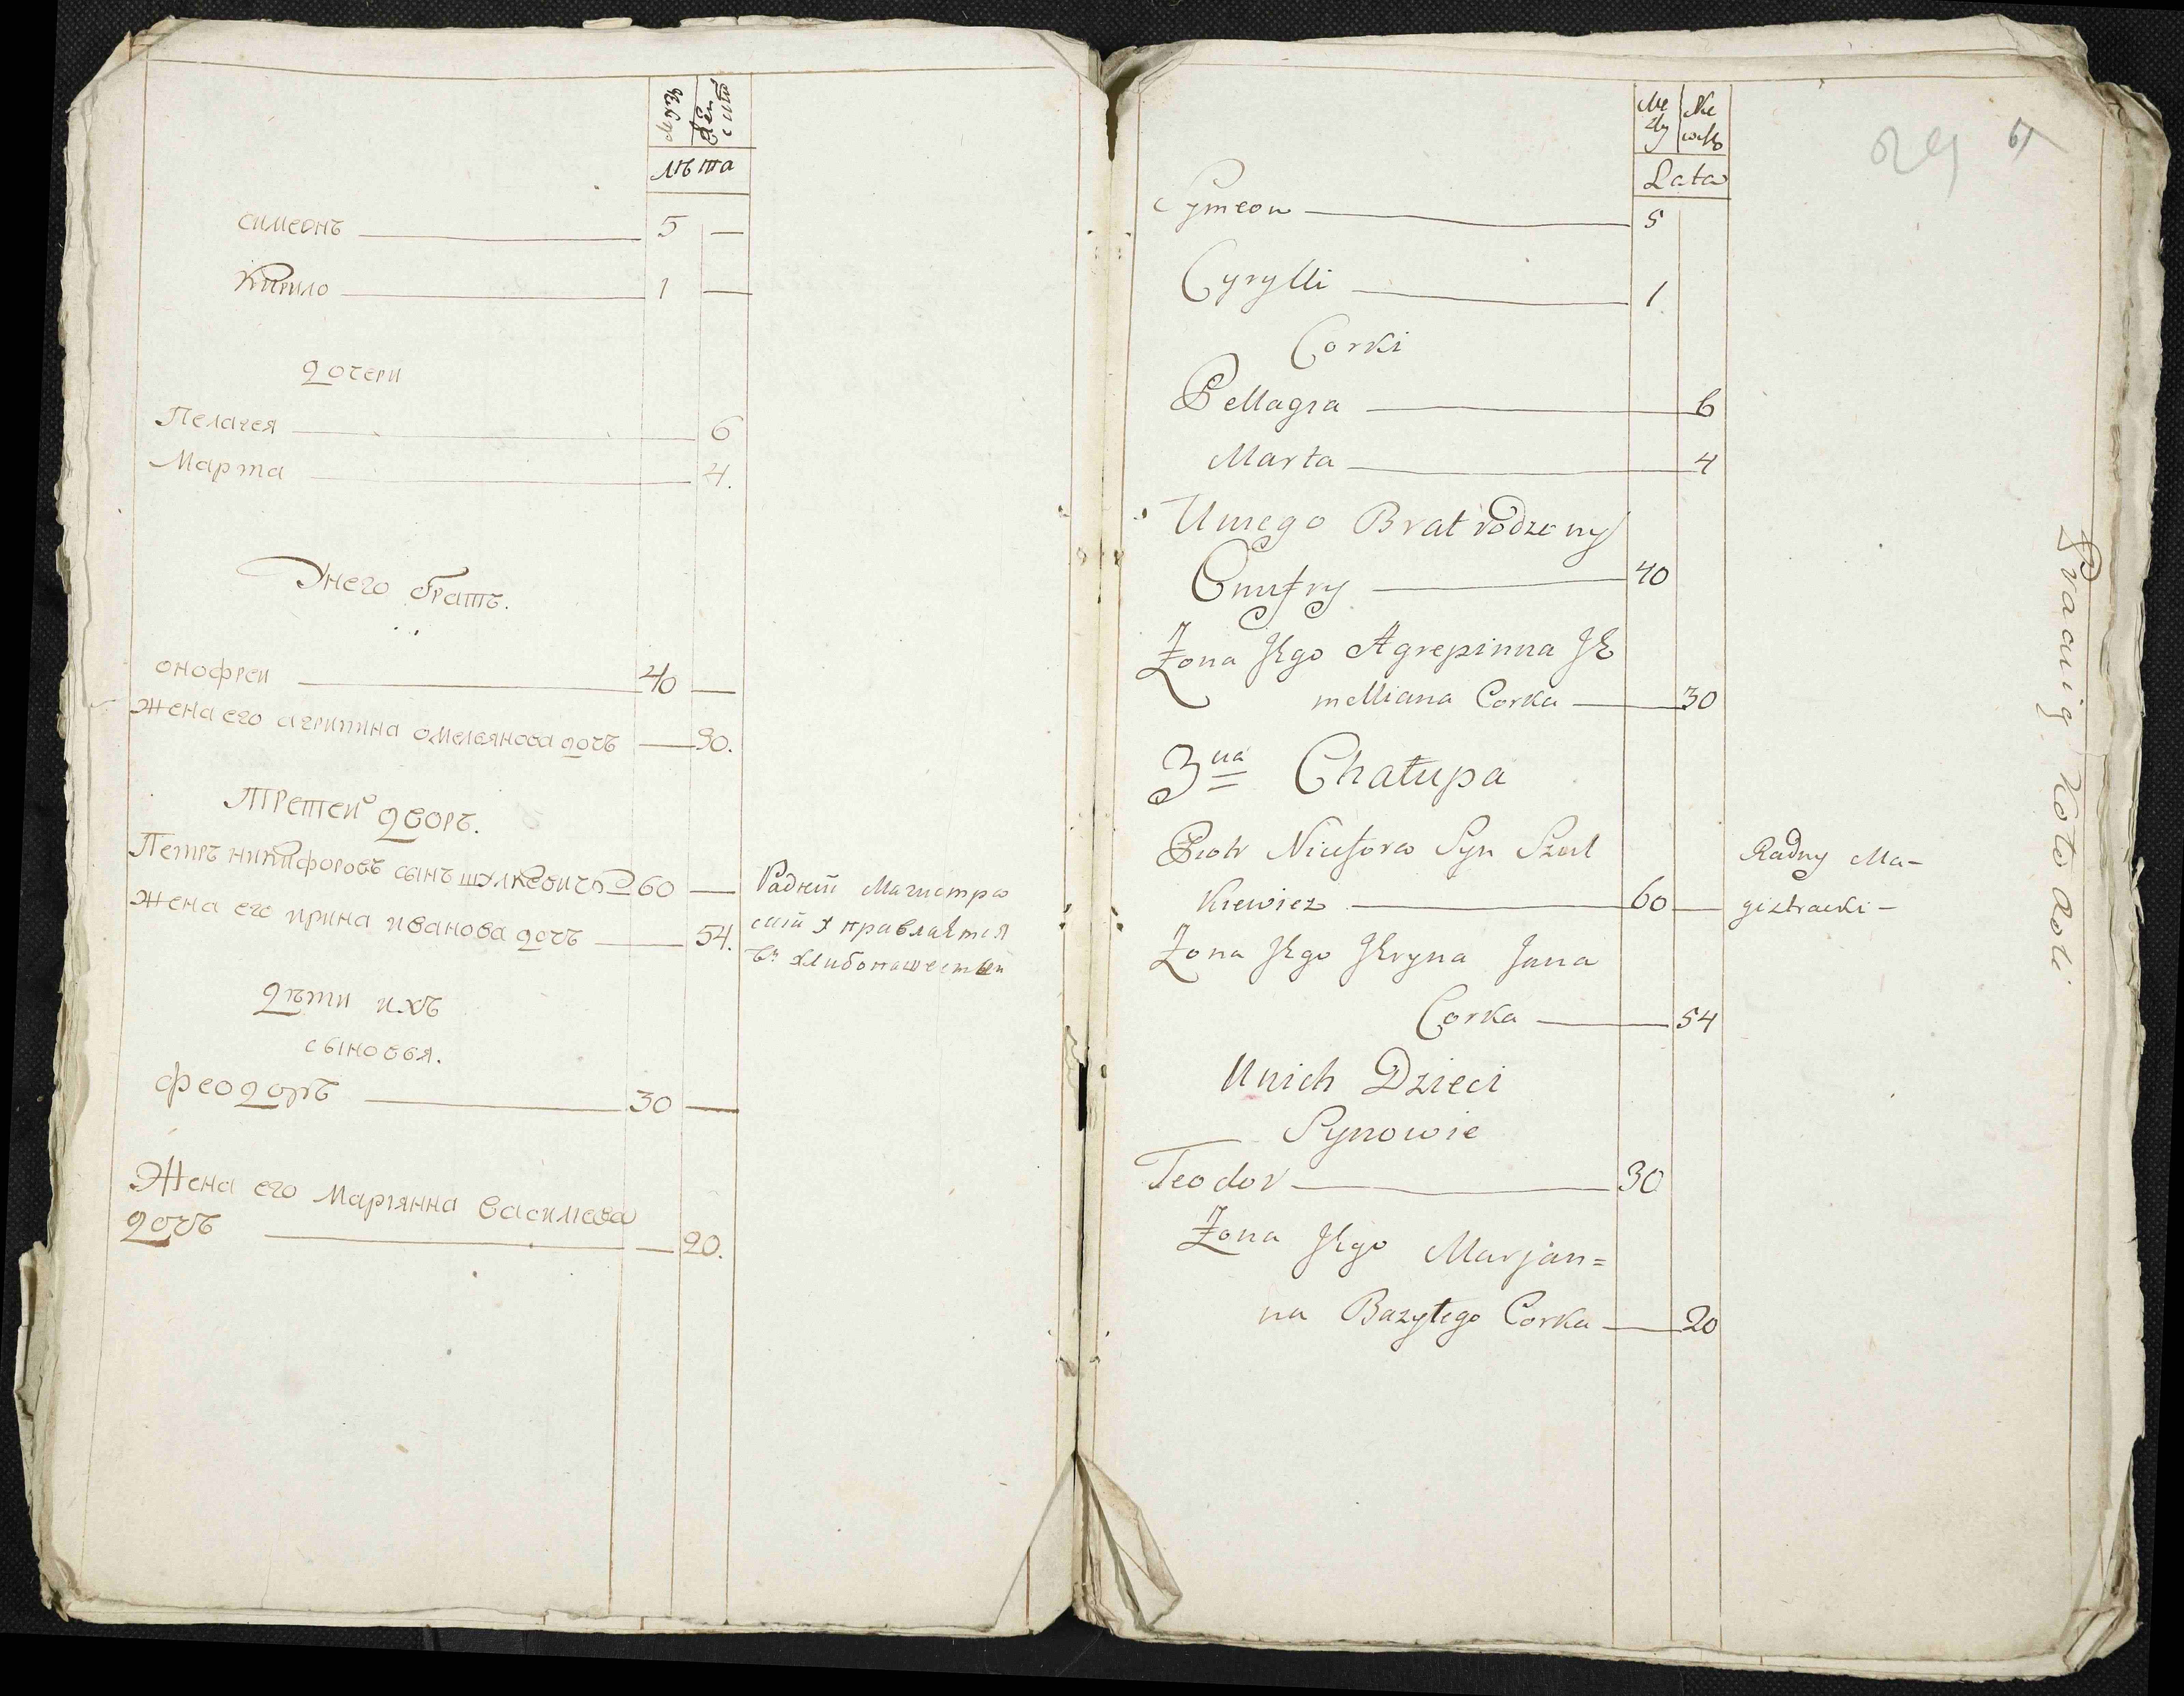 мужъ
жен
скъ
лѣта
симеонъ 5 —
Кирило 1 —
дочери
Пелагея 6
Марта 4.
Унего братъ.
онофреи 40 —
жена его агрипина омелеянова дочъ — 30.
Третеи дворъ.
Петръ никифоровъ сынъ шулкевичъ 60 — Радній Магистра
жена его ирина иванова дочъ — 54.
дѣти ихъ
сыновья.
феодоръ 30 —
Жена его Маріянна Василева
дочъ — 20.
Mę
zly
Lata
29
61
Symeon 5
Cyrylli 1
Corki
Pellagra 6
Marta 4
Uniego Brat rodzony
Onufry 40
Żona Jego Agrepinna Je
melliana Corka 30
3cia Chałupa
Piotr Niceforow Syn Szul
Kiewicz 60 — Radny Ma-
gistracki -
Żona Jego Jryna Jana
Corka 54
Unich Dzieci
Synowie
Teodor 30
Żona Jego Marjan=
na Bazylego Corka 20